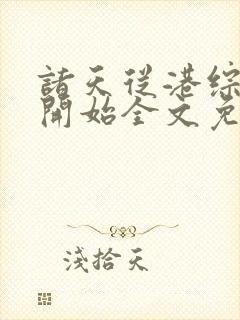 諸天從港綜
開始全文免
淺拾天